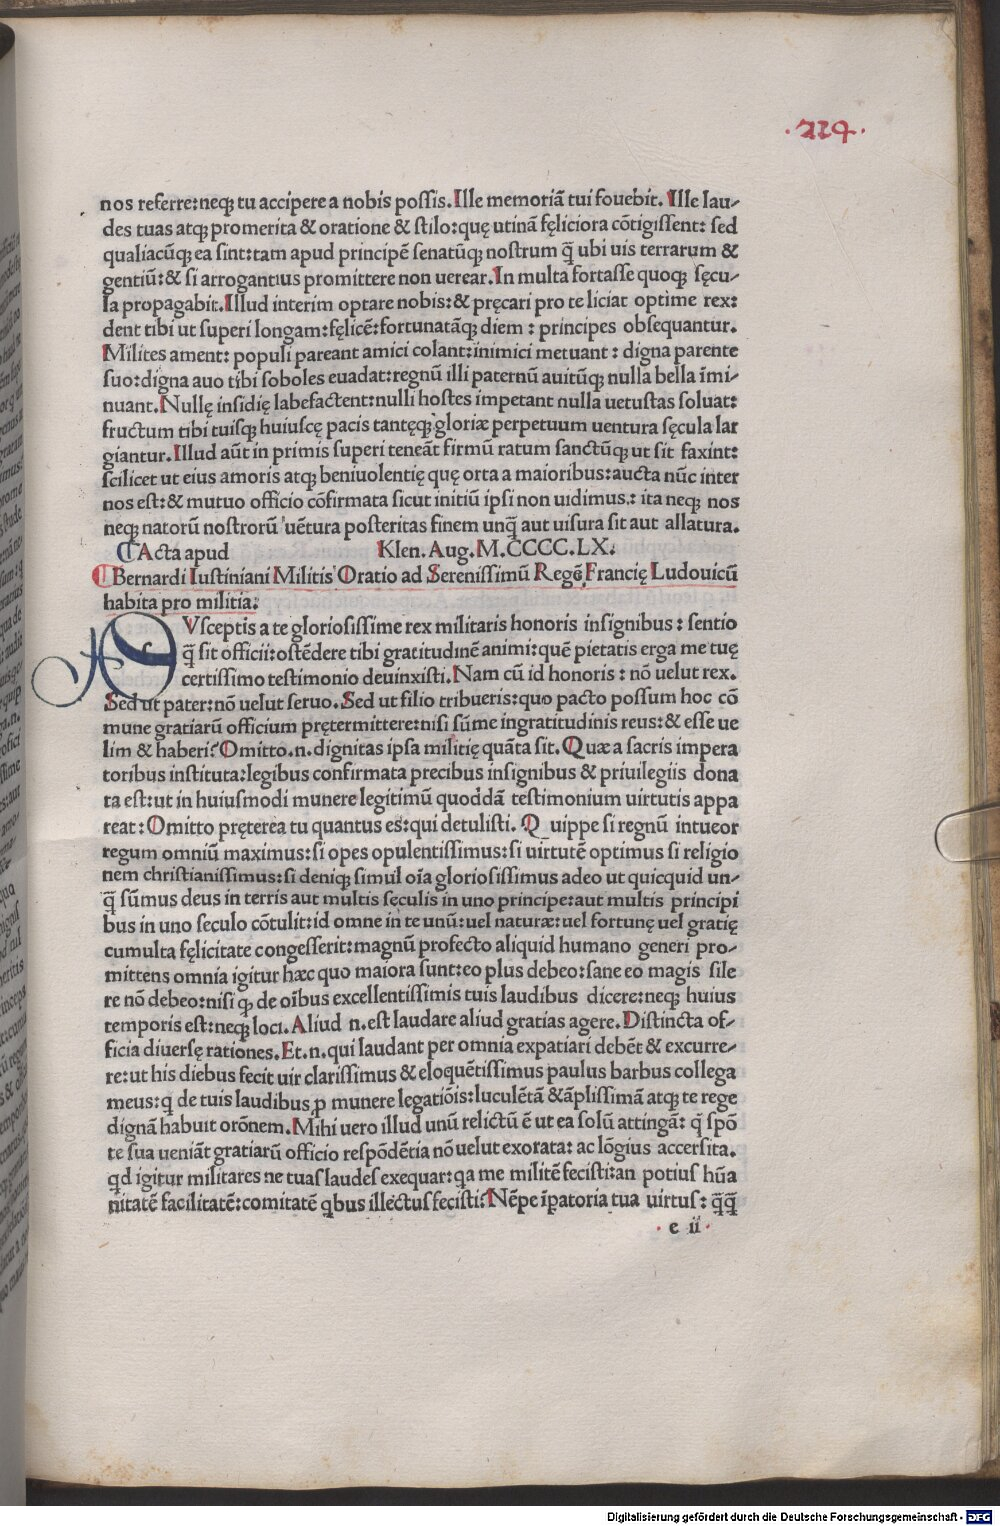 ·224·
nos referre: neqꝫ tu accipere a nobis possis. Ille memoriā tui fouebit. Ille lau-
des tuas atqꝫ promerita & oratione & stilo: quę utinā fęliciora cōtigissent: sed
qualiacūqꝫ ea sint: tam apud principē senatūqꝫ nostrum q̄ ubi uis terrarum &
gentiū: & si arrogantius promittere non uerear. In multa fortasse quoqꝫ sęcu-
la propagabit. Illud interim optare nobis: & pręcari pro te liciat optime rex:
dent tibi ut superi longam: fęlicē: fortunatāqꝫ diem : principes obsequantur.
Milites ament: populi pareant amici colant: inimici metuant : digna parente
suo: digna auo tibi soboles euadat: regnū illi paternū auitūqꝫ nulla bella īmi-
nuant. Nullę insidię labefactent: nulli hostes impetant nulla uetustas soluat:
fructum tibi tuisqꝫ huiuscę pacis tantęqꝫ gloriæ perpetuum uentura sęcula lar
giantur. Illud aūt in primis superi teneāt firmū ratum sanctūqꝫ ut sit faxint:
scilicet ut eius amoris atqꝫ beniuolentię quę orta a maioribus: aucta nūc inter
nos est: & mutuo officio cōfirmata sicut initiū ipsi non uidimus: ita neqꝫ nos
neqꝫ natorū nostrorū uētura posteritas finem unq̄ aut uisura sit aut allatura.
Acta apud Klen. Aug. M.CCCC.LX.
Bernardi Iustiniani Militis Oratio ad Serenissimū Regē Francię Ludouicū
habita pro militia:
S Vsceptis a te gloriosissime rex militaris honoris insignibus : sentio
q̄ sit officii: ostēdere tibi gratitudinē animi: quē pietatis erga me tuę
certissimo testimonio deuinxisti. Nam cū id honoris : nō uelut rex.
Sed ut pater: nō uelut seruo. Sed ut filio tribueris: quo pacto possum hoc cō
mune gratiarū officium prętermittere: nisi sūme ingratitudinis reus: & esse ue
lim & haberi? Omitto .n. dignitas ipsa militię quāta sit. Quæ a sacris impera
toribus instituta: legibus confirmata precibus insignibus & priuilegiis dona
ta est: ut in huiusmodi munere legitimū quoddā testimonium uirtutis appa
reat: Omitto pręterea tu quantus es: qui detulisti. Quippe si regnū intueor
regum omniū maximus: si opes opulentissimus: si uirtutē optimus si religio
nem christianissimus: si deniqꝫ simul oīa gloriosissimus adeo ut quicquid un-
q̄ sūmus deus in terris aut multis sęculis in uno principe: aut multis principi
bus in uno seculo cōtulit: id omne in te unū: uel naturæ: uel fortunę uel gratię
cumulta fęlicitate congesserit: magnū profecto aliquid humano generi pro-
mittens omnia igitur hæc quo maiora sunt: eo plus debeo: sane eo magis sile
re nō debeo: nisi qꝫ de oībus excellentissimis tuis laudibus dicere: neqꝫ huius
temporis est: neqꝫ loci. Aliud n. est laudare aliud gratias agere. Distincta of-
ficia diuersę rationes. Et .n. qui laudant per omnia expatiari debēt & excurre-
re: ut his diebus fecit uir clarissimus & eloquētissimus paulus barbus collega
meus: q̣ de tuis laudibus ꝓ munere legatiōis: luculētā & āplissimā atqꝫ te rege
dignā habuit orōnem. Mihi uero illud unū relictū ē ut ea solū attingā: q̄ spō
te sua ueniāt gratiarū officio respōdētia nō uelut exorata: ac lōgius accersita.
qd igitur militares ne tuas laudes exequar: qa me militē fecisti: an potius hūa
nitatē facilitatē: comitatē qbus illectus fecisti? Nēpe īꝑatoria tua uirtus : q̄q̄
· e ii ·
Digitalisierung gefördert durch die Deutsche Forschungsgemeinschaft - DFG